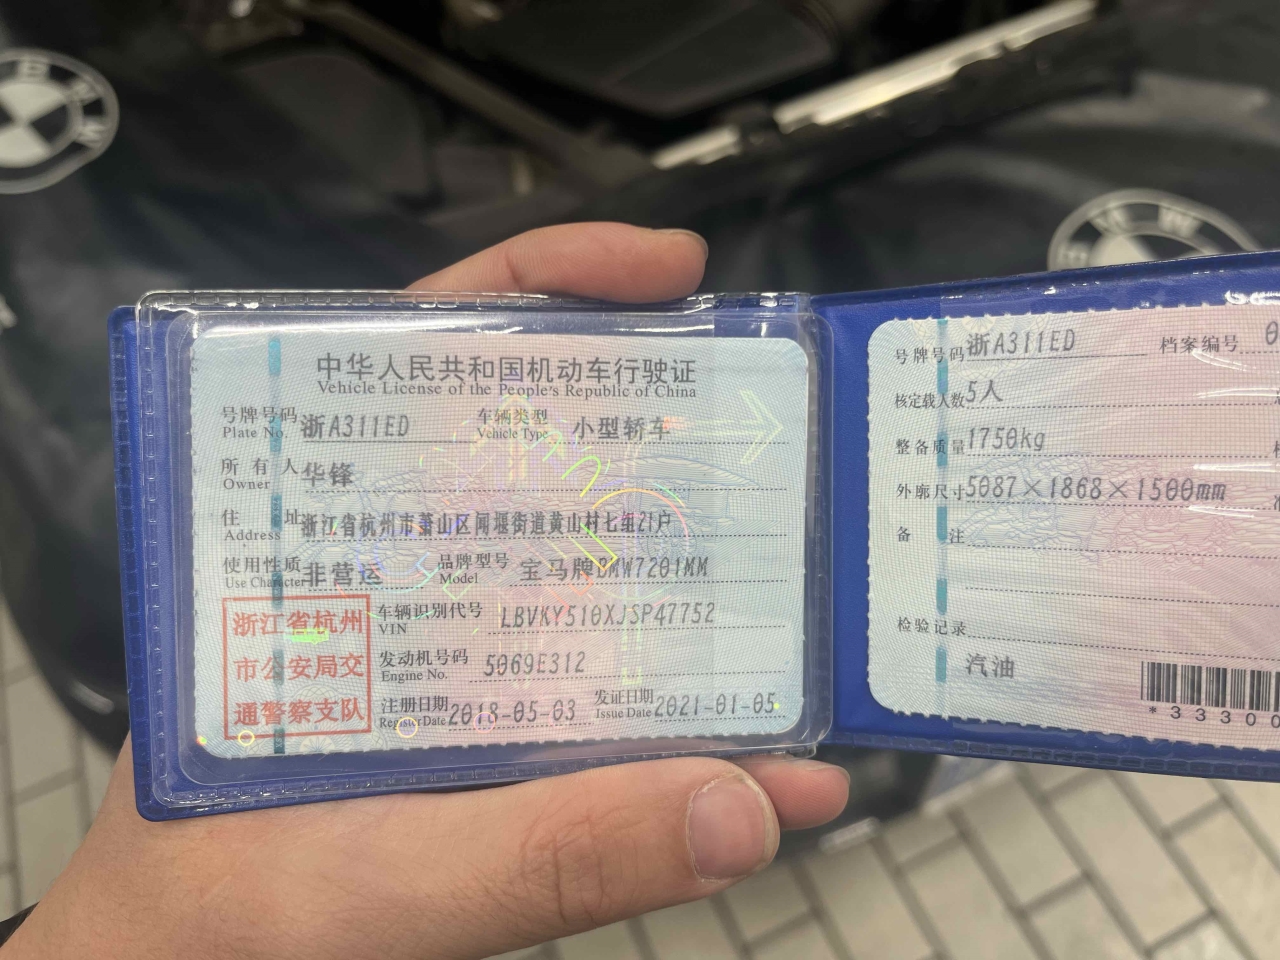 BMW
BMW
中华人民共和国机动车行驶证
Vehicle License of the People's Republic of China
号牌号码 浙A311ED 车辆类型 小型轿车
Plate No. Vehicle Type
所有人 华锋
Owner
住址 浙江省杭州市萧山区闻堰街道黄山村七组21户
Address
使用性质 非营运 品牌型号 宝马牌BMW7201MM
Use Character Model
浙江省杭州
市公安局交
通警察支队
车辆识别代号 LBVKY510XJSP47752
VIN
发动机号码 5069E312
Engine No.
注册日期 2018-05-03 发证日期 2021-01-05
Register Date Issue Date
号牌号码 浙A311ED 档案编号 0
核定载人数 5人
整备质量 1750kg
外廓尺寸 5087×1868×1500mm
备注
检验记录
汽油
*3300